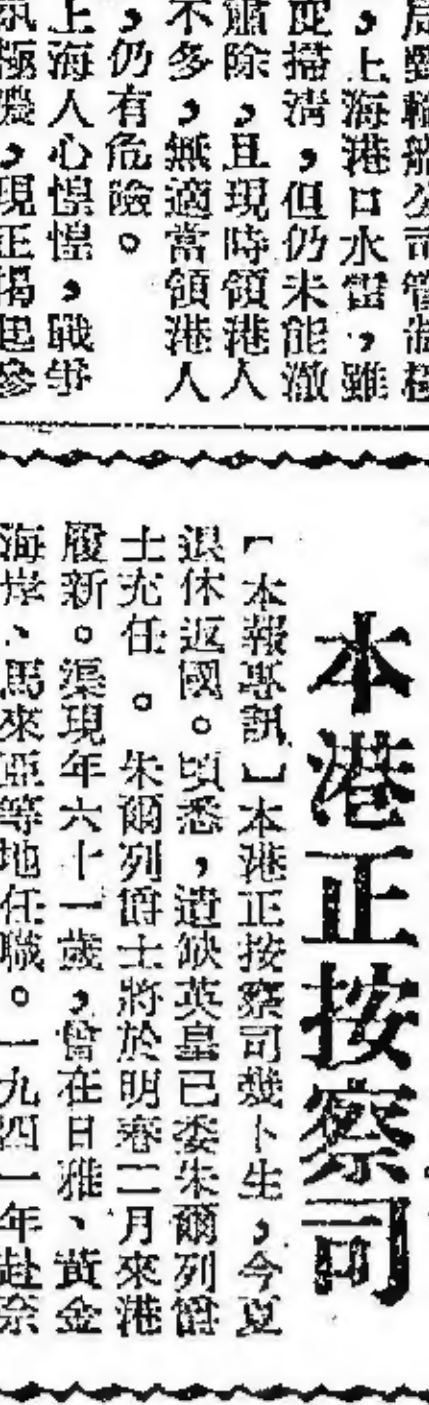 輪船公司管
，上海港口水雷，雖
掃清，但仍未能澈
肅除，且現時領港人
不多，無適當領港人
，仍有危險。
上海人心惶惶，戰爭
極濃，現正
本港正按察司
【本報專訊】本港正按察司幾卜生，今夏
退休返國。頃悉，遺缺英皇已委朱爾列爵
士充任。朱爾列爵士將於明春二月來港
履新。渠現年六十一歲，曾在日雅、黃金
海岸、馬來亞等地任職。一九四一年赴奈